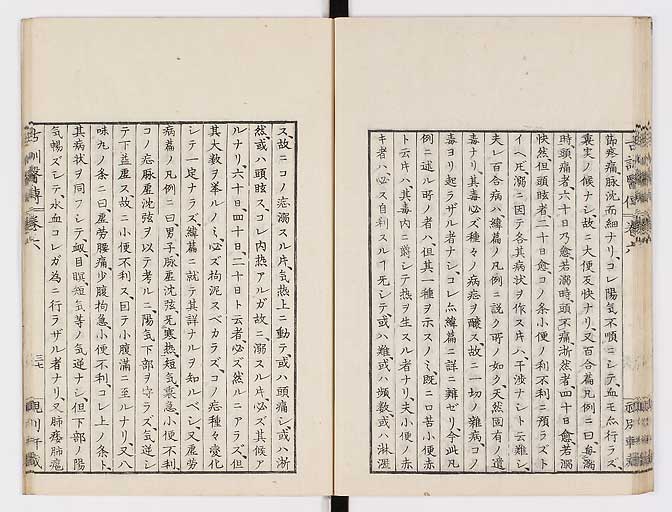 節疼痛脉沈而細ナリ、コレ陽気不順ニシテ、血モ亦行ラズ、
裏実ノ候ナシ、故ニ大便反快ナリ、又百合篇凡例ニ曰毎溺
時頭痛者、六十日乃愈、若溺時頭不痛淅然者四十日愈、若溺
快然、但頭眩者二十日愈、コノ条小便ノ利不利ニ預ラズト
イヘ𪜈、溺ニ因テ各其病状ヲ作ス片ハ、干渉ナシト云難シ、
夫レ百合病ハ緯篇ノ凡例ニ説ク所ノ如ク天然固有ノ遺
毒ナリ、其毒必ズ種々ノ病症ヲ醸ス、故ニ一切ノ雑病、コノ
毒ヨリ起ラザル者ナシ、コレ亦緯篇ニ詳ニ辨ゼリ、今此凡
例ニ述ル所ノ者ハ但其一種ヲ示スノミ、既ニ口苦小便赤
ト云片ハ、其毒内ニ欝シテ熱ヲ生スル者ナリ、夫小便ノ赤
キ者ハ、必ス自利スルヿ死シテ、或ハ難或ハ頻数或ハ淋瀝
ス、故ニコノ症溺スル片、気熱上ニ動テ、或ハ頭痛シ、或ハ淅
然、或ハ頭眩ス、コレ内熱アルガ故ニ、溺スル片必ズ其候ア
ルナリ、六十日、四十日、二十日ト云者、必ズ然ルニアラズ、但
其大数ヲ挙ルノミ、必ズ拘泥スベカラズ、コノ症種々変化
シテ一定ナラズ、緯篇ニ就テ其詳ナルヲ知ルベシ、又虚労
病篇ノ凡例ニ曰男子脉虚沈弦、无寒熱、短気裏急、小便不利、
コノ症脉虚沈弦ヲ以テ考ルニ、陽気下部ヲ守ラズ、気逆シ
テ下益虚ス、故ニ小便不利ス、因テ小腹満ニ至ルナリ、又八
味丸ノ条ニ曰、虚労腰痛、少腹拘急、小便不利、コレ上ノ条ト
其病状ヲ同フシテ、衂、目瞑、短気等ノ気逆ナシ、但下部ノ陽
気暢ズシテ、水血コレガ為ニ行ラザル者ナリ、又肺痿肺癰
古訓醫傳 巻六
三七